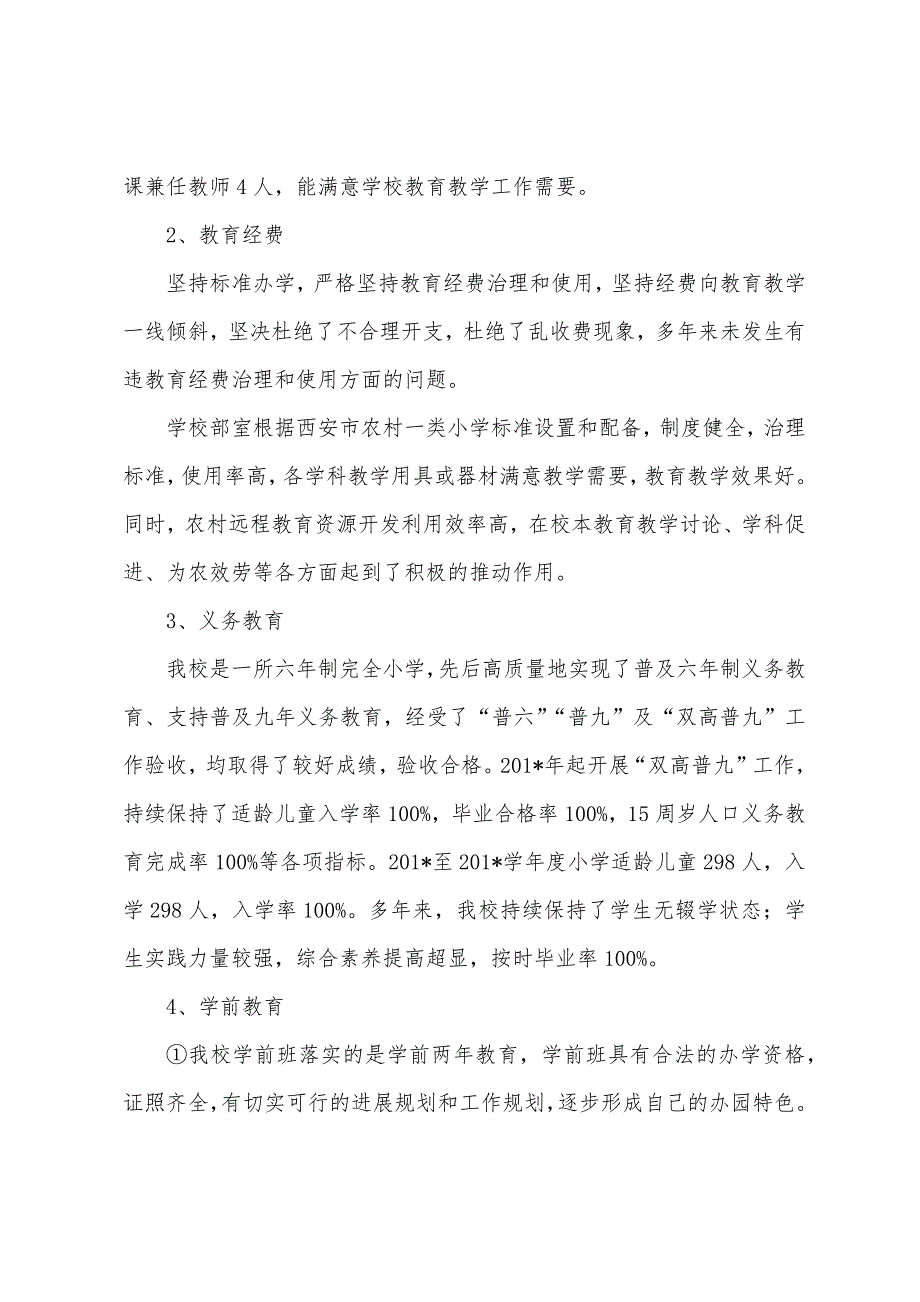 课兼任教师 4 人，能满意学校教育教学工作需要。
2、教育经费
坚持标准办学，严格坚持教育经费治理和使用，坚持经费向教育教学
一线倾斜，坚决杜绝了不合理开支，杜绝了乱收费现象，多年来未发生有
违教育经费治理和使用方面的问题。
学校部室根据西安市农村一类小学标准设置和配备，制度健全，治理
标准，使用率高，各学科教学用具或器材满意教学需要，教育教学效果好。
同时，农村远程教育资源开发利用效率高，在校本教育教学讨论、学科促
进、为农效劳等各方面起到了积极的推动作用。
3、义务教育
我校是一所六年制完全小学，先后高质量地实现了普及六年制义务教
育、支持普及九年义务教育，经受了“普六”“普九”及“双高普九”工
作验收，均取得了较好成绩，验收合格。201*年起开展“双高普九”工作，
持续保持了适龄儿童入学率 100%，毕业合格率 100%，15 周岁人口义务教
育完成率 100%等各项指标。201*至 201*学年度小学适龄儿童 298 人，入
学 298 人，入学率 100%。多年来，我校持续保持了学生无辍学状态；学
生实践力量较强，综合素养提高超显，按时毕业率 100%。
4、学前教育
①我校学前班落实的是学前两年教育，学前班具有合法的办学资格，
证照齐全，有切实可行的进展规划和工作规划，逐步形成自己的办园特色。